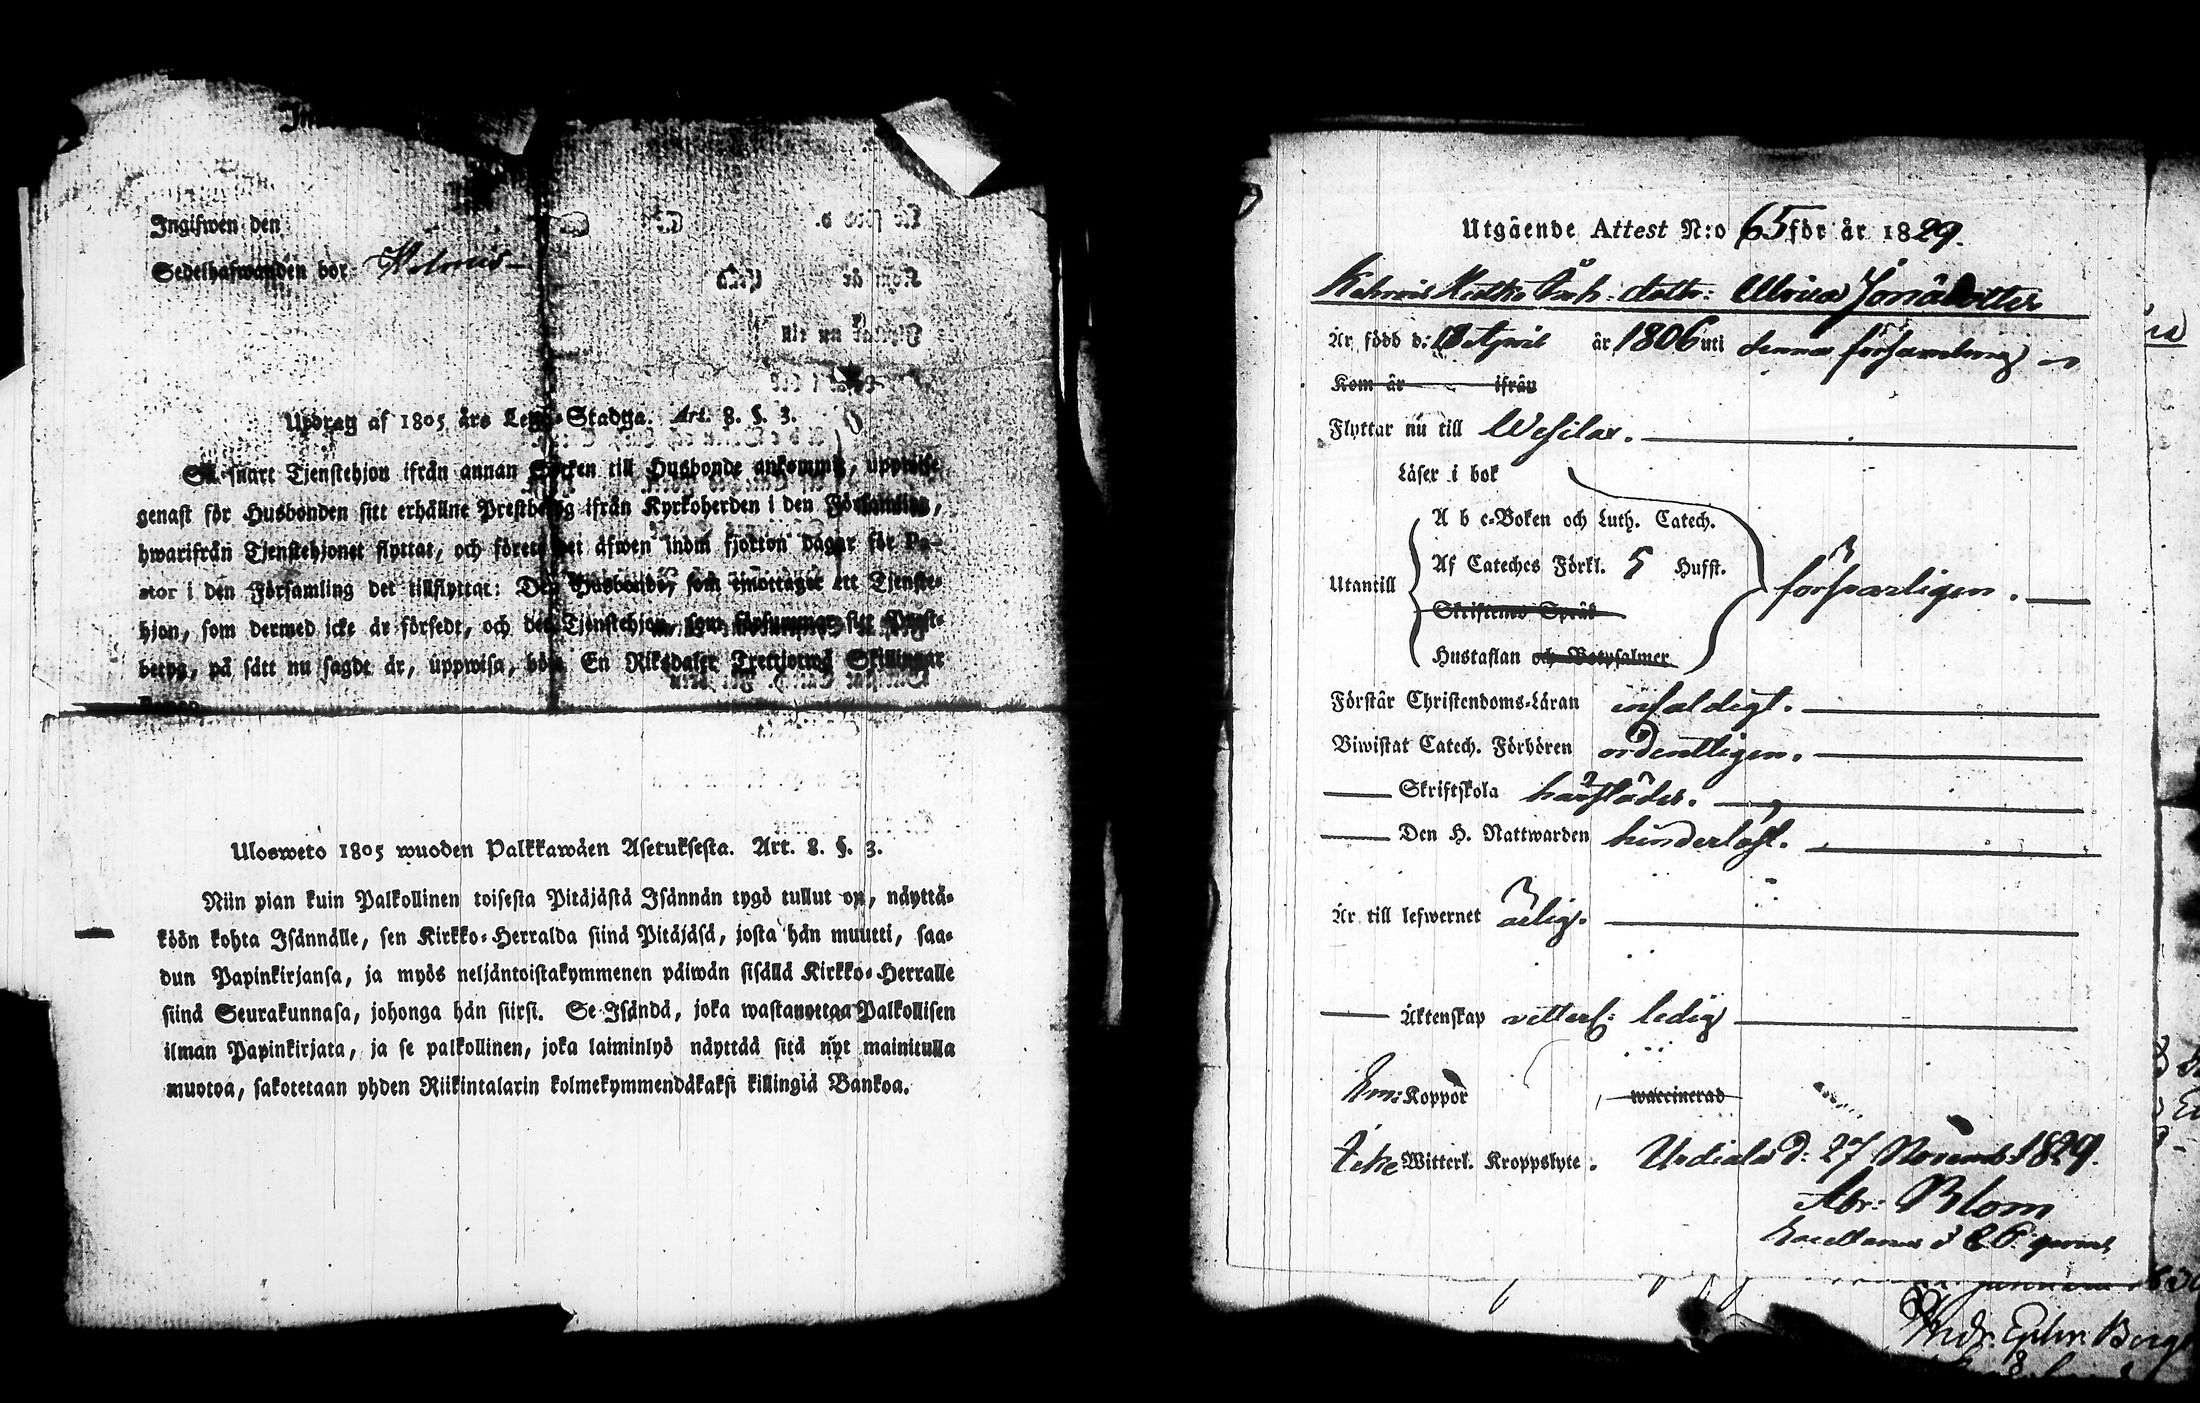 Ingifwen den
Sedelhafwanden bor
Updrag af 1805 års Lego-Stadga. Art. 8. §. 3.
Så snart Tjenstehjon ifrån annan Socken till Husbonde ankommit, uppwise
genast för Husbonden sitt erhållne Prestbetyg ifrån Kyrkoherden i den Församling,
hwarifrån Tjenstehjonet flyttat, och förete det äfwen inom fjorton dagar för Pa-
stor i den Församling det tillflyttat: Den Husbonde, som emottager ett Tjenste-
hjon, som dermed icke är försedt, och det Tjenstehjon, som försummar sitt Prest-
betyg, på sätt nu sagdt är, uppwisa, böte En Riksdaler Trettiotwå Skillingar
Banco.
Ulosweto 1805 wuoden Palkkawäen Asetuksesta. Art. 8. §. 3.
Niin pian kuin Palkollinen toisesta Pitäjästä Isännän tygö tullut on, näyttä-
köön kohta Isännälle, sen Kirkko-Herralda siinä Pitäjäsä, josta hän muutti, saa-
dun Papinkirjansa, ja myös neljäntoistakymmenen päiwän sisällä Kirkko-Herralle
siinä Seurakunnasa, johonga hän siirsi. Se Isändä, joka wastanottaa Palkollisen
ilman Papinkirjata, ja se palkollinen, joka laiminlyö näyttää sitä nyt mainitulla
muotoa, sakotetaan yhden Riikintalarin kolmekymmendäkaksi killingiä Bankoa.
Utgående Attest N:o 65 för år 1829.
dottr: Ulrica Jonädotter
Är född d: April år 1806 uti denna församling
Kom år ifrån
Flyttar nu till Wesilax.
Läser i bok
A b c-Boken och Luth. Catech.
Utantill Af Cateches Förkl. 5 Hufst. försvarligen.
Skriftenes Språk
Hustaflan och Botpsalmer
Förstår Christendoms-Läran enfaldigt.
Biwistat Catech. Förhören ordentligen.
Skriftskola härstädes.
Den H. Nattwarden hinderlöst.
Är till lefwernet ärlig.
Äktenskap vetterl: ledig
Koppor waccinerad
Icke Witterl. Kroppslyte. Urdiala d: 27 Novemb: 1829.
Abr: Blom